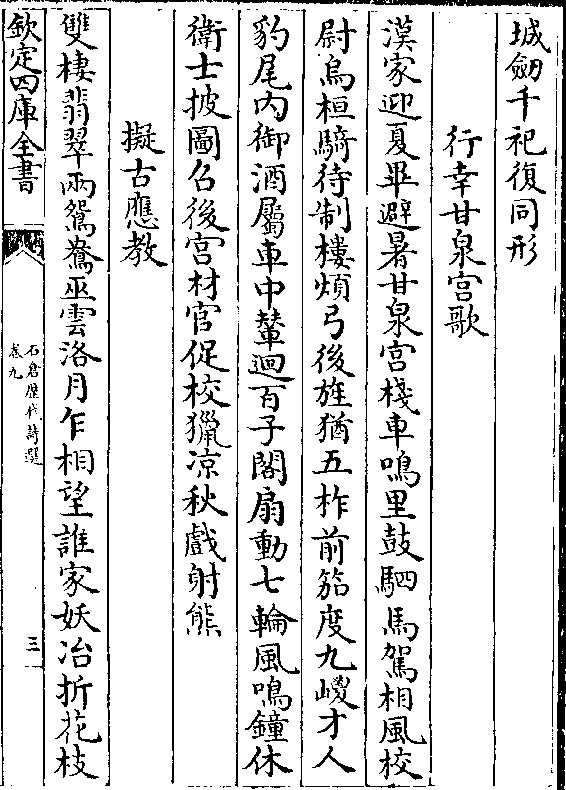 城劒千祀復同形
行幸甘泉宫歌
漢家迎夏畢避暑甘泉宫棧車鳴里鼓駟馬駕相風校
尉烏桓騎待制樓煩弓後旌猶五柞前笳度九嵕才人
豹尾内御酒屬車中輦迴百子閣扇動七輪風鳴鐘休
衛士披圖召後宫材官促校獵凉秋戲射熊
擬古應教
雙棲翡翠兩鴛鴦巫雲洛月乍相望誰家妖冶折花枝
欽定四庫全書
石倉歴代詩選
卷九
三